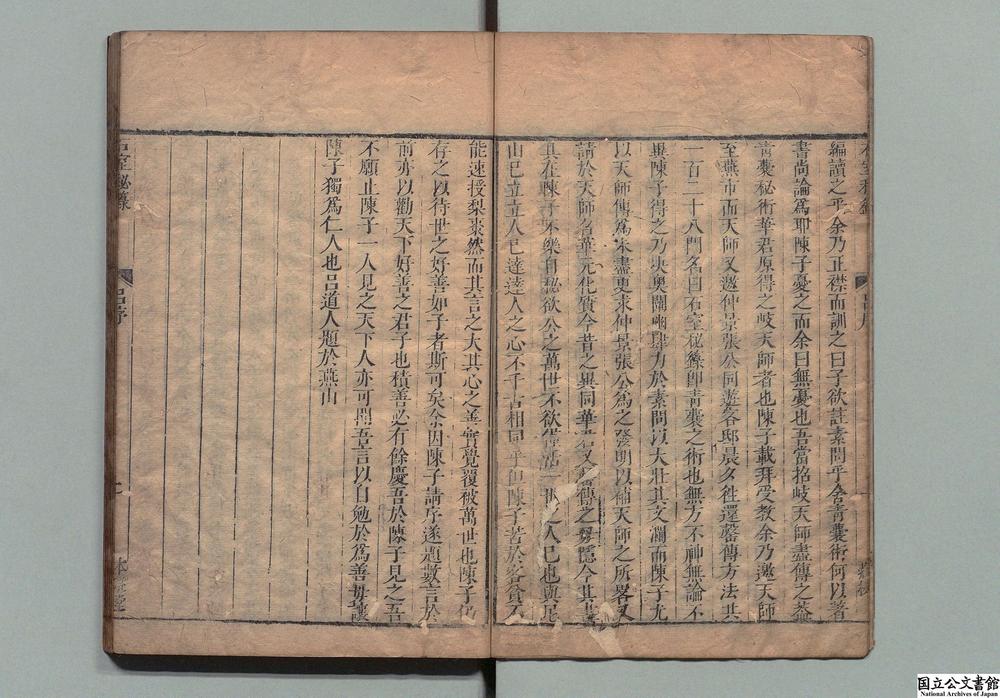 編讀之乎余乃正襟而訓之曰子欲註素問乎舍青囊術何以著
書尚論爲耶陳子憂之而余曰無憂也吾當招岐天師盡傳之蓋
青囊秘術華君原得之岐天師者也陳子載拜受教余乃邀天師
至燕市而天師又邀仲景張公同遊客邸晨夕徃還罄傳方法共
一百二十八門名曰石室秘錄卽靑囊之術也無方不神無論不
異陳子得之乃抉奥闡幽肆力於素問 大壯其文瀾而陳子尤
以天師傳爲未盡更求仲景張公爲之發明以補天師之所畧又
請於天師名華元化質今昔之異同華君又 傳之 隱今其書
具在陳子不樂自秘欲公之萬世不欲 一世之人已也與尼
山已立立人已達達人之心不千古相同乎但陳子苦於客貧不
能速授梨棗然而其言之大其心之善實覺覆被萬世也陳子仍
存之以待世之好善如子者斯可矣余因陳子請序遂題數言於
前亦以勸天下好善之君子也積善必有餘慶吾於陳子見之吾
不願止陳子一人見之天下人亦可聞吾言以自勉於爲善毋讓
陳子獨爲仁人也呂道人題於燕山
石室秘錄
呂序
二
本 堂
国立公文書館
National Archives of Japan